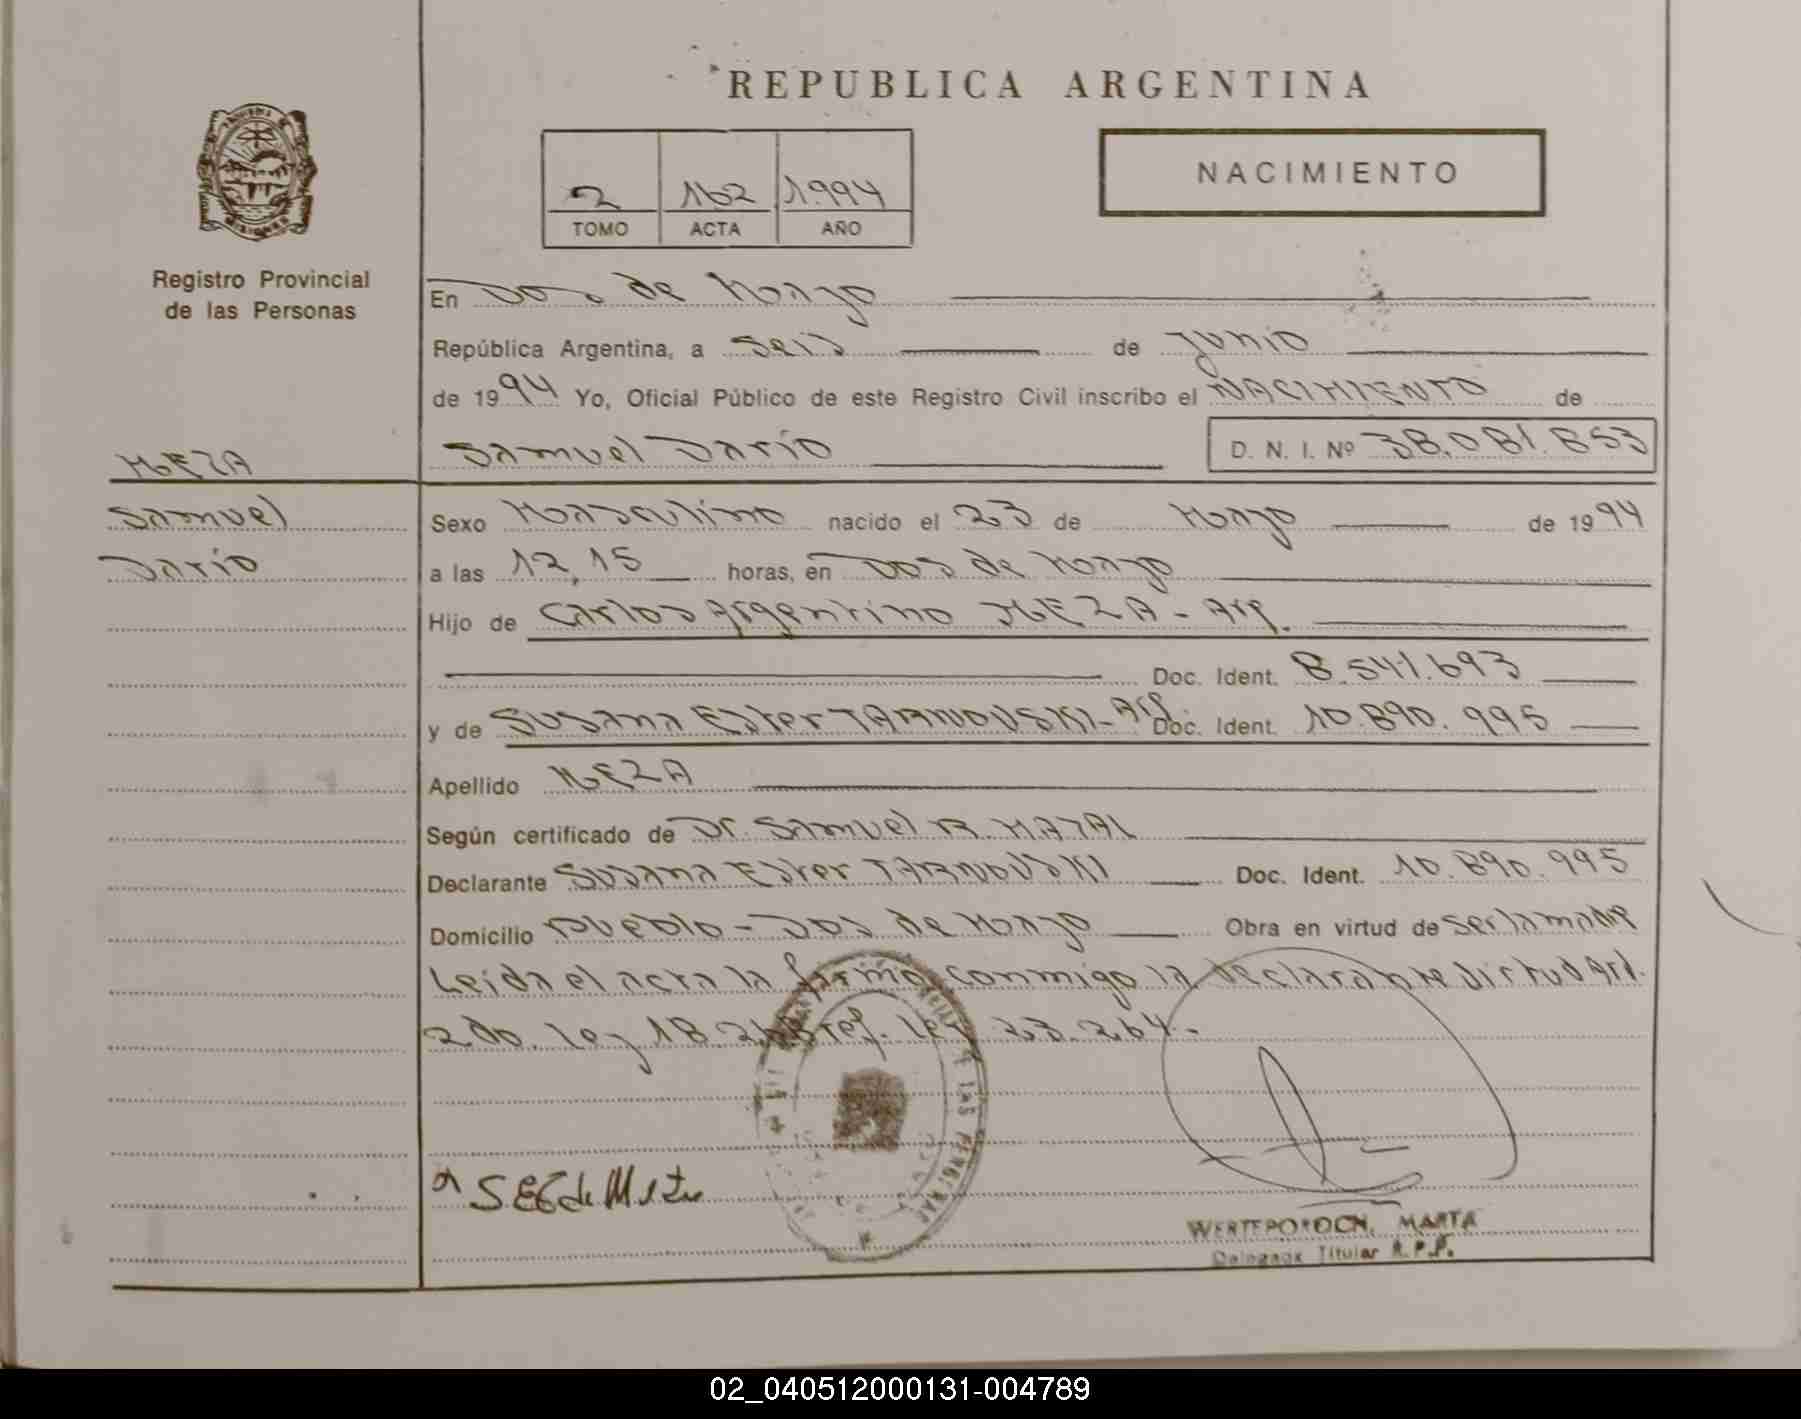 REPUBLICA ARGENTINA
NACIMIENTO
2 162 1.994
TOMO ACTA AÑO
Registro Provincial
de las Personas
En Dos de Mayo
República Argentina, a seis de junio
de 1994 Yo, Oficial Público de este Registro Civil inscribo el NACIMIENTO de
MEZA
Samuel Darío D. N. I. Nº 38.081.853
Samuel
Darío
Sexo Masculino nacido el 23 de Mayo de 1994
a las 12,15 horas, en Dos de Mayo
Hijo de Carlos Argentino MEZA - Arg.
Doc. Ident. 8.541.693
y de Susana Ester TARNOVSKI - Arg. Doc. Ident. 10.890.995
Apellido MEZA
Según certificado de Dr. Samuel R.
Declarante Susana Ester TARNOVSKI Doc. Ident. 10.890.995
Domicilio Pueblo - Dos de Mayo Obra en virtud de ser la madre
Leida el acta la firma conmigo la declarante virtud Art.
2do. ley 18.248 ref. ley 23.264.-
DE LAS PERSONAS
WERTEPOROCH, MARTA
Titular R.P.P.
02_040512000131-004789